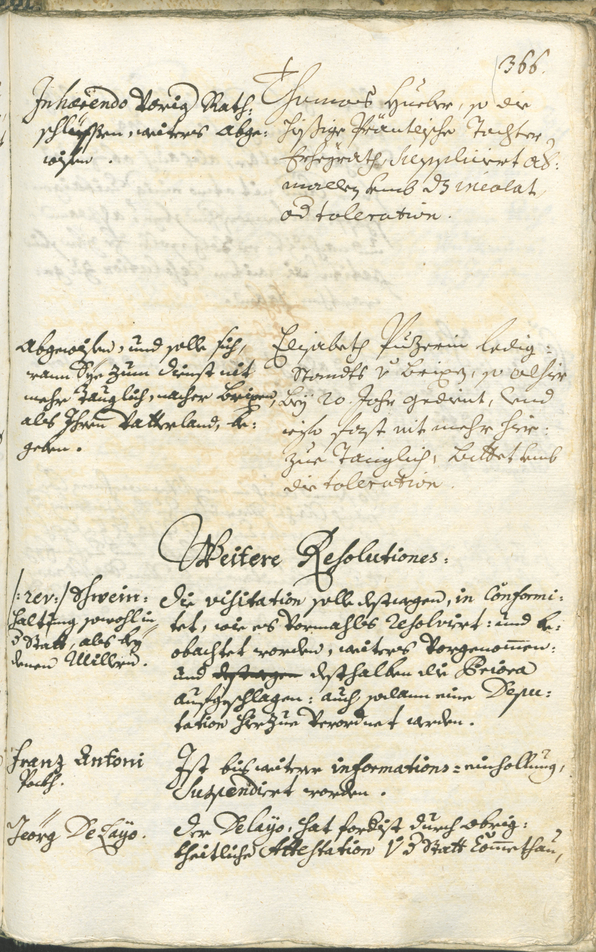 366.
Inhærendo Vorig Rath-
schlüssen, weiters abge-
wisen.
Thomas Hueber, so die
hiesige Tochter
supplicirt
umb dz incolat
od toleration.
Abgewisen, und solle sich,
wann Sye zum dienst nit
mehr tauglich, nacher Brixen,
als Ihren Vatterland, be-
geben.
Elisabeth Puzerin ledig-
Standts v Brixen, so alhie
bej 20 Jahr gedient, und
nit mehr hie-
zue tauglich, bittet umb
die toleration.
Weitere Resolutiones.
/: rev: / Schwein-
haltung sowohl in
d Statt, als bey
denen Müllern.
Die visitation solle destwegen, in Conformi-
tet, wie es vormahls resolvirt- und be-
obachtet worden, weiters vorgenommen-
und destwegen desthalben die Priora
aufgeschlagen: auch sodann eine Depu-
tation hierzue verordnet werden.
Franz Antoni
Ist bis weitere informations-einhollung,
suspendirt worden.
Jeörg DeLajo.
Der Delajo, hat fordist durch obrig-
kheitliche Attestation v d Statt